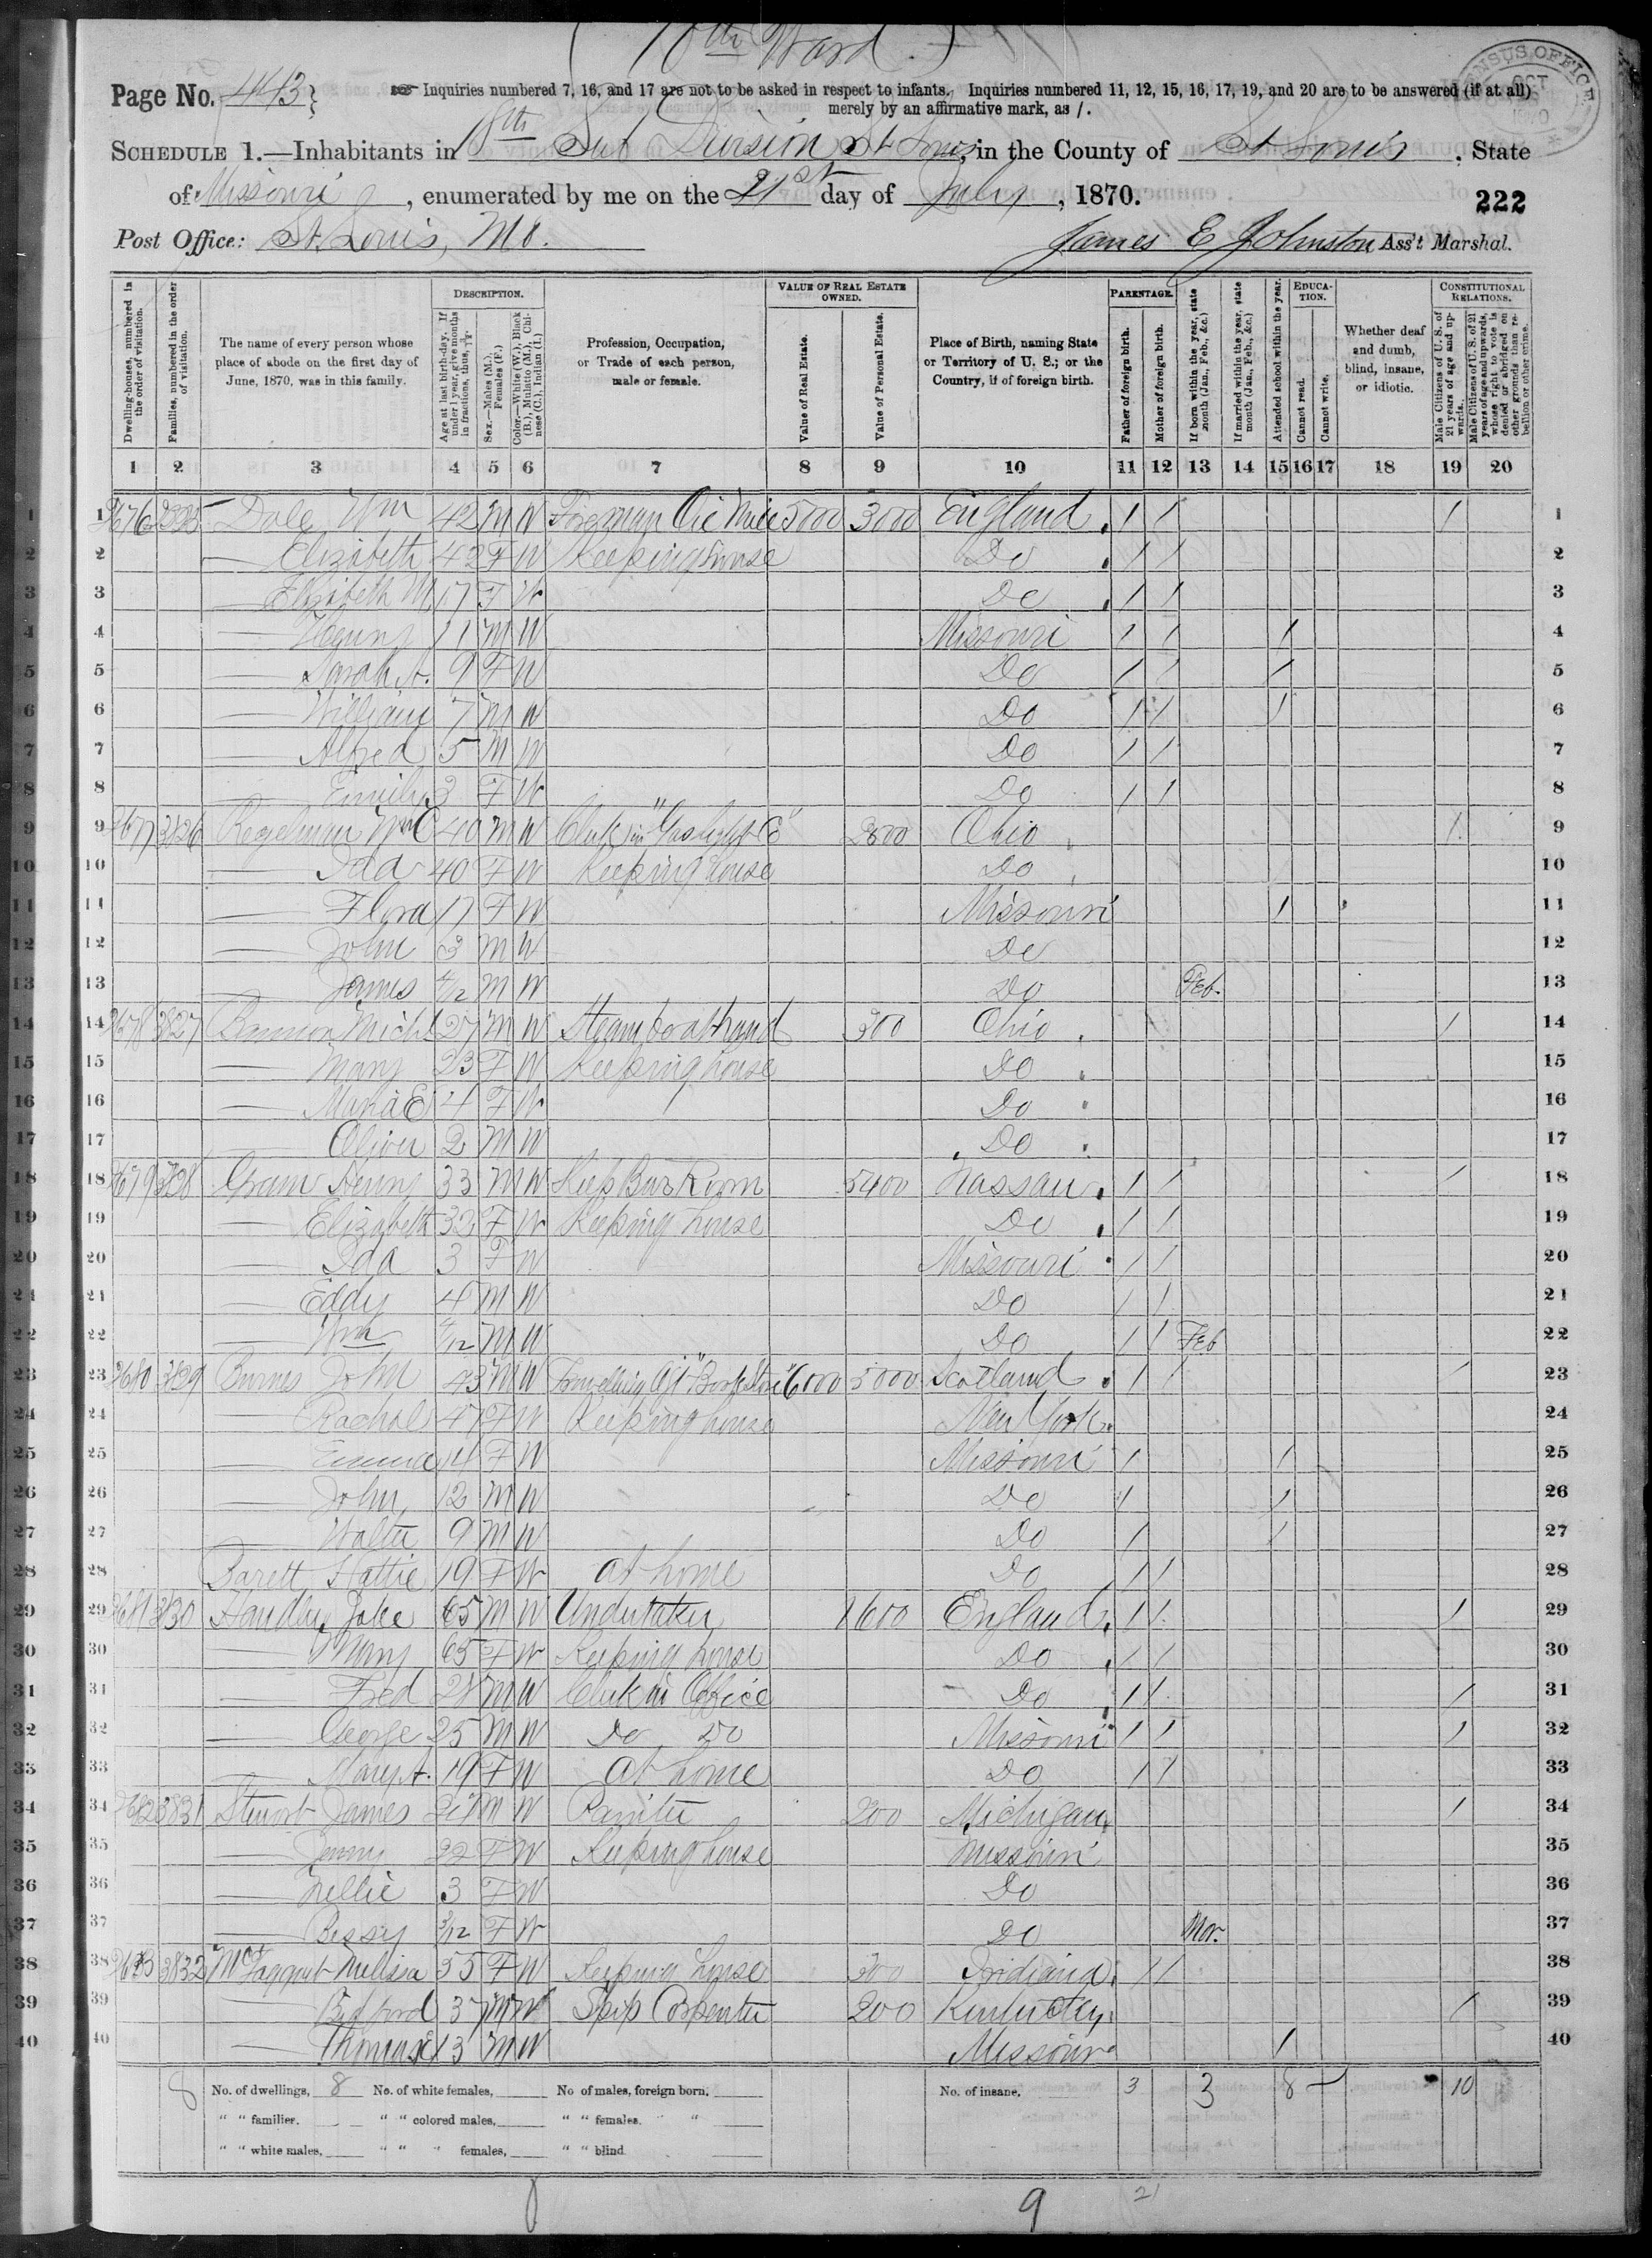 (10th Ward.)
Page No. 443
Inquiries numbered 7, 16, and 17 are not to be asked in respect to infants. Inquiries numbered 11, 12, 15, 16, 17, 19, and 20 are to be answered (if at all)
merely by an affirmative mark, as /.
CENSUS OFFICE OCT
SCHEDULE 1.—Inhabitants in 18th Sub Division St Louis, in the County of St Louis, State
of Missouri, enumerated by me on the 21st day of July, 1870.
222
Post Office: St. Louis, Mo.
James E Johnston Ass't Marshal.
Dwelling-houses, numbered in the order of visitation.
Families, numbered in the order of visitation.
The name of every person whose place of abode on the first day of June, 1870, was in this family.
DESCRIPTION.
Age at last birth-day. If under 1 year, give months in fractions, thus,
Sex.—Males (M.), Females (F.)
Color.—White (W.), Black (B.), Mulatto (M.), Chinese (C.), Indian (I.)
Profession, Occupation, or Trade of each person, male or female.
VALUE OF REAL ESTATE OWNED.
Value of Real Estate.
Value of Personal Estate.
Place of Birth, naming State or Territory of U. S.; or the Country, if of foreign birth.
PARENTAGE.
Father of foreign birth.
Mother of foreign birth.
If born within the year, state month (Jan., Feb., &c.)
If married within the year, state month (Jan., Feb., &c.)
Attended school within the year.
EDUCATION.
Cannot read.
Cannot write.
Whether deaf and dumb, blind, insane, or idiotic.
CONSTITUTIONAL RELATIONS.
Male Citizens of U. S. of 21 years of age and upwards.
Male Citizens of U. S. of 21 years of age and upwards, whose right to vote is denied or abridged on other grounds than rebellion or other crime.
1 2 3 4 5 6 7 8 9 10 11 12 13 14 15 16 17 18 19 20
1 Dale Wm 42 M W Foreman 5000 3000 England / / / 1
2 — Elizabeth 42 F W Keeping house Do / / 2
3 — Elizabeth M 17 F W Do / / 3
4 — Henry 11 M W Missouri / / / 4
5 — Sarah A. 9 F W Do / / / 5
6 — William 7 M W Do / / / 6
7 — Alfred 5 M W Do / / 7
8 — Emily 3 F W Do / / 8
9 3826 Regelman Wm C 40 M W Clerk in "Gas Light Co" 2800 Ohio / 9
10 — Ida 40 F W Keeping house Do 10
11 — Flora 17 F W Missouri / 11
12 — John 3 M W Do 12
13 — James 4/12 M W Do Feb. 13
14 3827 Bannon Michl 27 M W Steamboat hand 300 Ohio / 14
15 — Mary 23 F W Keeping house Do 15
16 — Maria E 4 F W Do 16
17 — Oliver 2 M W Do 17
18 3679 3828 Gram Henry 33 M W Keeps Bar Room 5400 Nassau / / / 18
19 — Elizabeth 32 F W Keeping house Do / / 19
20 — Ida 3 F W Missouri / / 20
21 — Eddy 4 M W Do / / 21
22 — Wm 4/12 M W Do / / Feb 22
23 3680 3829 Burnes John 43 M W Travelling Agt "Book Store" 6000 5000 Scotland / / / 23
24 — Rachel 47 F W Keeping house New York 24
25 — Emma 14 F W Missouri / / 25
26 — John 12 M W Do / / 26
27 — Walter 9 M W Do / / 27
28 Barett Hattie 19 F W at home Do / / 28
29 3681 3830 Handley Jake 65 M W Undertaker 1600 England / / / 29
30 — Mary 65 F W Keeping house Do / / 30
31 — Fred 28 M W Clerk in Office Do / / / 31
32 — George 25 M W Do Do Missouri / / / 32
33 — Mary A. 19 F W at home Do / / 33
34 3682 3831 Stuart James 27 M W Painter 200 Michigan / 34
35 — Jenny 22 F W Keeping house Missouri 35
36 — Nellie 3 F W Do 36
37 — Bessy 3/12 F W Do Mar. 37
38 3683 3832 McTaggart Melissa 55 F W Keeping house 300 Indiana / / 38
39 — Bedford 37 M W Ship Carpenter 200 Kentucky / 39
40 — Thomas 13 M W Missouri / 40
8 No. of dwellings, 8 No. of white females, No of males, foreign born. No. of insane, 3 3 8 10
" " families. " " colored males, " " females. "
" " white males, " " " females, " " blind
9 21